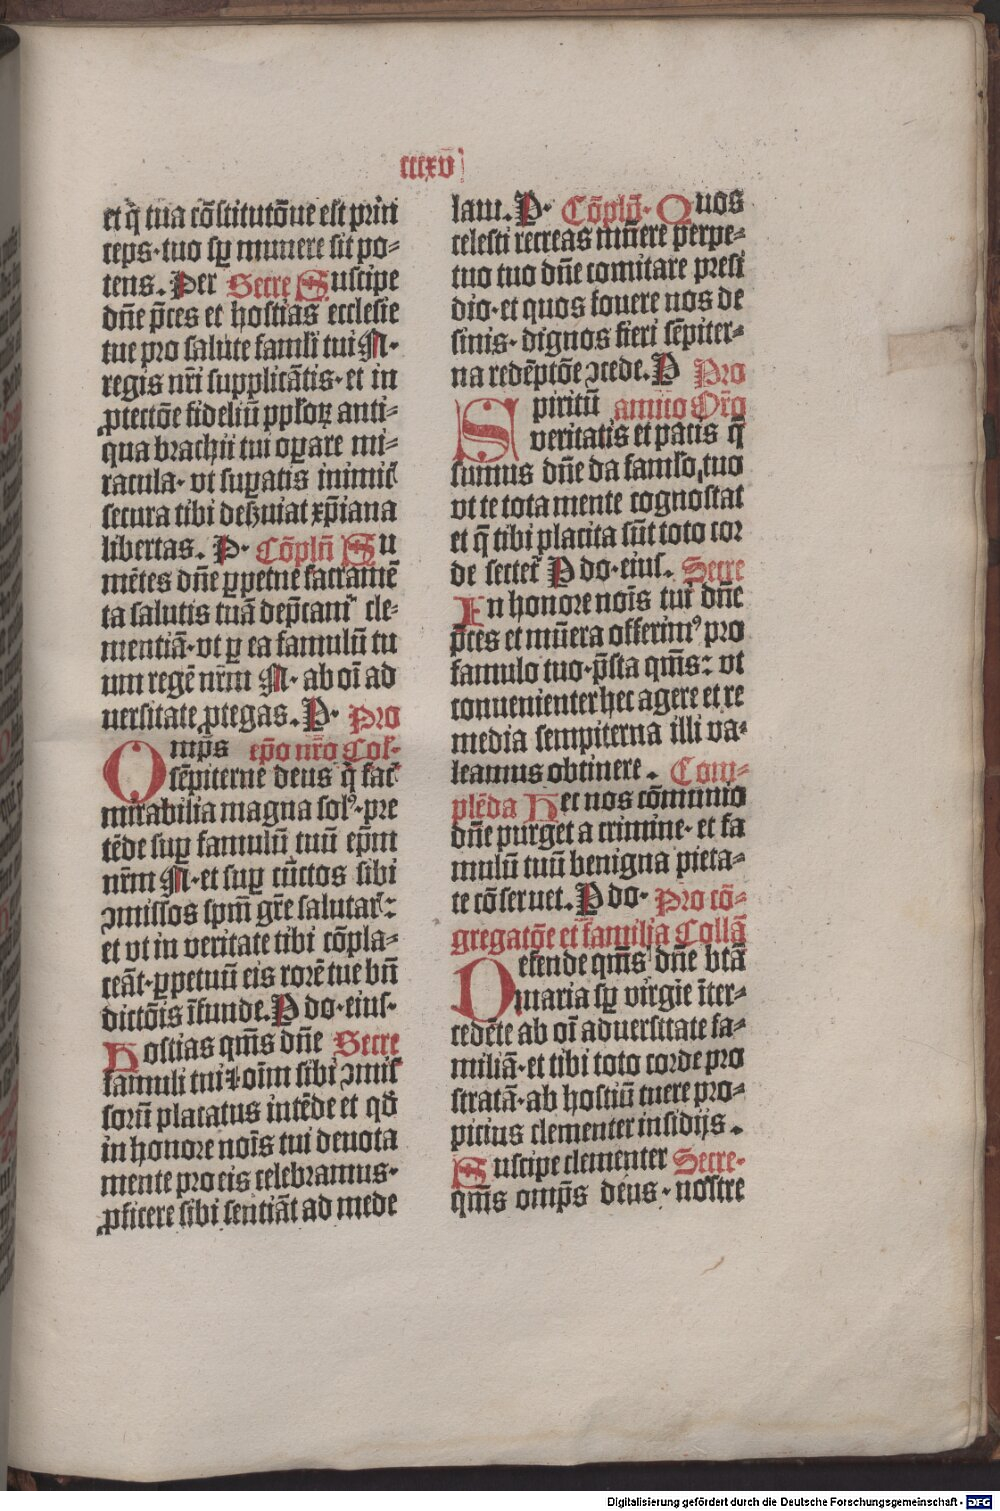 cccxv
et q̄ tua cōstitutōne est prin
ceps · tuo sꝑ munere sit po⸗
tens . Per Secre Suscipe
dn̄e p̄ces et hostias ecclesie
tue pro salute famli tui N ·
regis nr̄i supplicātis · et in
ꝓtectōe fideliū pplōꝝ anti⸗
qua brachii tui oꝑare mi⸗
racula · vt suꝑatis inimic̄
secura tibi deẜuiat xp̄iana
libertas . P · Cōpln̄ Su
mētes dn̄e ꝑpetue sacramē
ta salutis tuā dep̄cam̄ cle⸗
mentiā · vt ꝑ ea famulū tu
um regē nr̄m N · ab oī ad
uersitate ꝓtegas . P · Pro
Omp̄s ep̄o nr̄o Coll̄
sēpiterne deus q̄ fac̄
mirabilia magna solꝰ · pre
tēde suꝑ famulū tuū ep̄m
nr̄m N · et suꝑ cūctos sibi
ↄmissos spm̄ gr̄e salutar̄ :
et vt in veritate tibi cōpla⸗
ceāt · ꝑpetuū eis rorē tue bn̄
dictōis īfunde . P do · eius ·
Hostias qm̄s dn̄e Secre
famuli tui ⁊ oīm sibi ↄmis
sorū placatus intēde et qd̄
in honore noīs tui deuota
mente pro eis celebramus ·
ꝓficere sibi sentiāt ad mede
lam . P · Cōpln̄ · Quos
celesti recreas mūere perpe⸗
tuo tuo dn̄e comitare presi
dio · et quos fouere nos de
sinis · dignos fieri sēpiter⸗
na redēptōe ↄcede . P Pro
Spiritū amico Orō
veritatis et pacis q̄
sumus dn̄e da famlo tuo
vt te tota mente cognoscat
et q̄ tibi placita sūt toto cor
de sectet̄ P do · eius . Secre
In honore noīs tui dn̄e
p̄ces et mūera offerimꝰ pro
famulo tuo · p̄sta qm̄s : vt
conuenienter hec agere et re
media sempiterna illi va⸗
leamus obtinere . Com⸗
plēda Hec nos cōmunio
dn̄e purget a crimine · et fa
mulū tuū benigna pieta⸗
te cōseruet . P do · Pro cō⸗
gregatōe et familia Collā
Defende qm̄s dn̄e btā
maria sꝑ virgīe īter⸗
cedēte ab oī aduersitate fa⸗
miliā · et tibi toto corde pro
stratā · ab hostiū tuere pro⸗
picius clementer insidijs .
Suscipe clementer Secre ·
qm̄s omp̄s deus · nostre
Digitalisierung gefördert durch die Deutsche Forschungsgemeinschaft - DFG